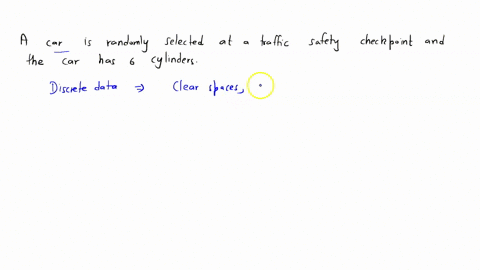 A car is randomly selected at a traffic safety checkpoint and
the car has 6 cylinders.
Discrete data ⇒ Clear spaces,